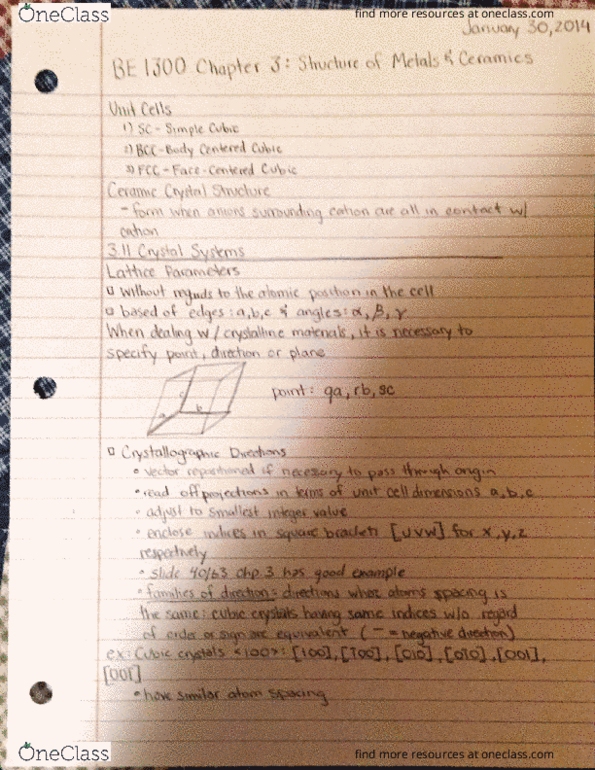 OneClass
find more resources at oneclass.com
January 30, 2014
BE 1300 Chapter 3: Structure of Metals & Ceramics
Unit Cells
1) SC - Simple Cubic
2) BCC - Body Centered Cubic
3) FCC - Face-Centered Cubic
Ceramic Crystal Structure
- form when anions surrounding cation are all in contact w/
cation
3.11 Crystal Systems
Lattice Parameters
□ without regards to the atomic position in the cell
□ based of edges: a,b,c & angles: α, β, γ
When dealing w/ crystalline materials, it is necessary to
specify point, direction or plane
a
b
c
point: qa, rb, sc
□ Crystallographic Directions
• vector repositioned if necessary to pass through origin
• read off projections in terms of unit cell dimensions a,b,c
• adjust to smallest integer value
• enclose indices in square brackets [uvw] for x,y,z
respectively
• slide 40/63 chp 3 has good example
• families of direction: directions whose atoms spacing is
the same: cubic crystals having same indices w/o regard
of order or sign are equivalent (‾ = negative direction)
ex: Cubic crystals <100>: [100], [1̅00], [010], [01̅0], [001],
[001̅]
• have similar atom spacing
OneClass
find more resources at oneclass.com